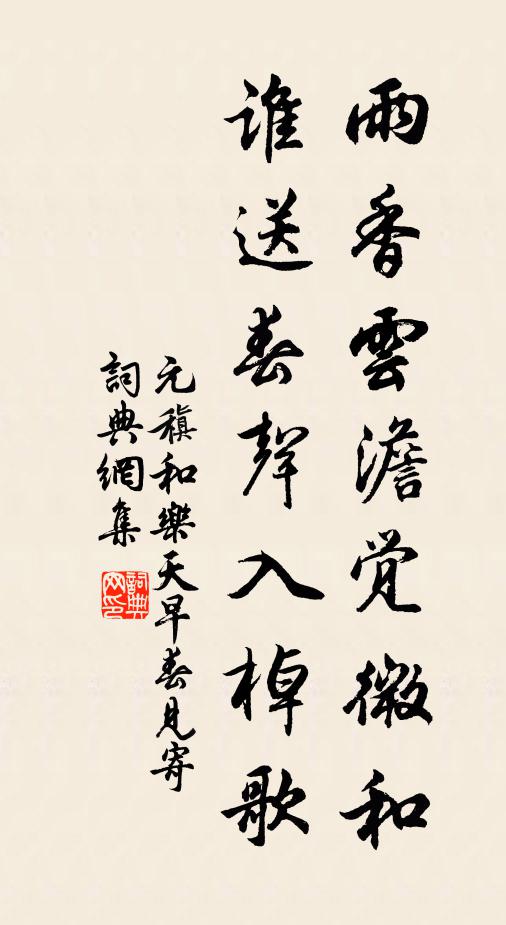 雨香雲澹覚微和
誰送春聲入棹歌
元稹和樂天早春見寄
詞典網集
詞典网印